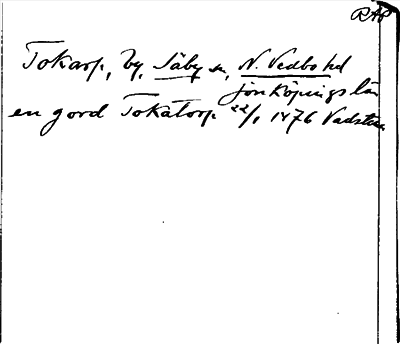 RAP
Tokarp, by, Säby sn, N. Vedbo hd
Jönköpings län
en gord Tokatorp 22/1 1476 Vadstena